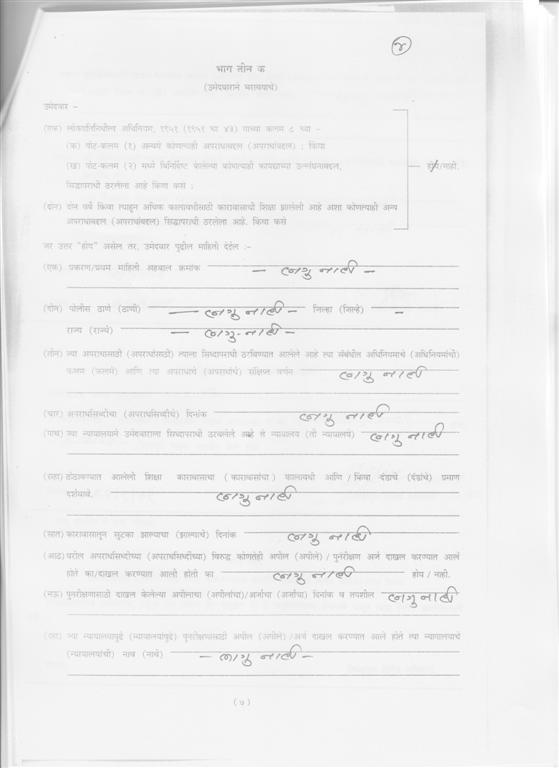 ४
भाग तीन क
(उमेदवाराने भरावयाचे)
उमेदवार :-
(एक) लोकप्रतिनिधीत्व अधिनियम, १९५१ (१९५१ चा ४३) याच्या कलम ८ च्या -
(क) पोट-कलम (१) अन्वये कोणत्याही अपराधाबद्दल (अपराधांबद्दल) ; किंवा
(ख) पोट-कलम (२) मध्ये विनिर्दिष्ट केलेल्या कोणत्याही कायद्याच्या उल्लंघनाबद्दल, होय/नाही.
सिद्धापराधी ठरलेला आहे किंवा कसे ;
(दोन) दोन वर्षे किंवा त्याहून अधिक कालावधीसाठी कारावासाची शिक्षा झालेली आहे अशा कोणत्याही अन्य
अपराधाबद्दल (अपराधांबद्दल) सिद्धापराधी ठरलेला आहे. किंवा कसे
जर उत्तर "होय" असेल तर, उमेदवार पुढील माहिती देईल :-
(एक) प्रकरण/प्रथम माहिती अहवाल क्रमांक - लागु नाही -
(दोन) पोलीस ठाणे (ठाणी) - लागु नाही - जिल्हा (जिल्हे) -
राज्य (राज्ये) - लागु नाही -
(तीन) ज्या अपराधासाठी (अपराधांसाठी) त्याला सिध्दापराधी ठरविण्यात आलेले आहे त्या संबंधीत अधिनियमाचे (अधिनियमांची)
कलम (कलमे) आणि त्या अपराधाचे (अपराधांचे) संक्षिप्त वर्णन लागु नाही
(चार) अपराधसिध्दीचा (अपराधसिध्दीचे) दिनांक लागु नाही
(पाच) ज्या न्यायालयाने उमेदवाराला सिध्दापराधी ठरवलेले आहे ते न्यायालय (ती न्यायालये) लागु नाही
(सहा) ठोठावण्यात आलेली शिक्षा कारावासाचा (कारावासांचा) कालावधी आणि / किंवा दंडाचे (दंडांचे) प्रमाण
दर्शवावे. लागु नाही
(सात) कारावासातून सुटका झाल्याचा (झाल्याचे) दिनांक लागु नाही
(आठ) वरील अपराधसिध्दीच्या (अपराधसिध्दींच्या) विरुद्ध कोणतेही अपील (अपीले) / पुनरीक्षण अर्ज दाखल करण्यात आलं
होते का/दाखल करण्यात आली होती का लागु नाही होय / नाही.
(नऊ) पुनरीक्षणासाठी दाखल केलेल्या अपीलाचा (अपीलांचा)/अर्जाचा (अर्जांचा) दिनांक व तपशील लागु नाही
(दहा) ज्या न्यायालयापुढे (न्यायालयांपुढे) पुनरीक्षणासाठी अपील (अपीले) /अर्ज दाखल करण्यात आले होते त्या न्यायालयाचे
(न्यायालयांची) नाव (नावे) - लागु नाही -
(५)